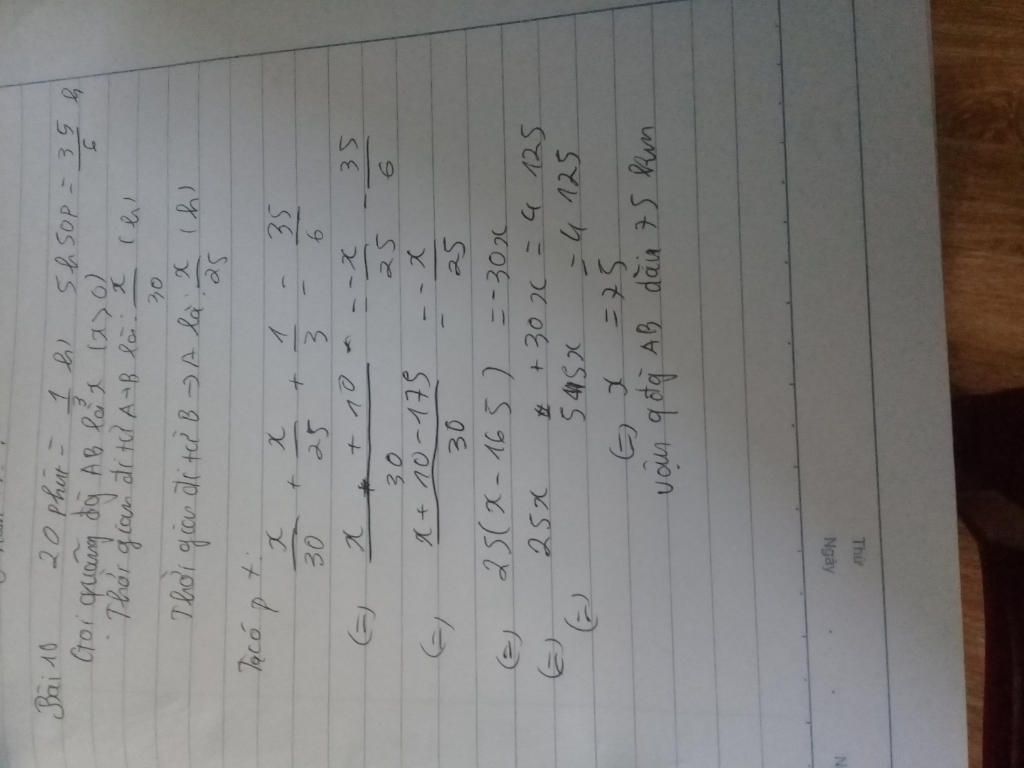 Bài 10 20 phút = 1/3 h, 5h50p = 35/6 h
Gọi quãng đg AB là x (x>0)
. Thời gian đi từ A→B là: x/30 (h)
Thời gian đi từ B→A là: x/25 (h)
Ta có p t
x/30 + x/25 + 1/3 - 35/6
(=) x + 10/30 - - x/25 - 35/6
(=) x + 10 - 175/30 - - x/25
(=) 25(x - 165) = -30x
(=) 25x + 30x = 4 125
(=) x = 4 125
(=) x = 75
vậy qđg AB dài 75 km
Thứ
Ngày
N